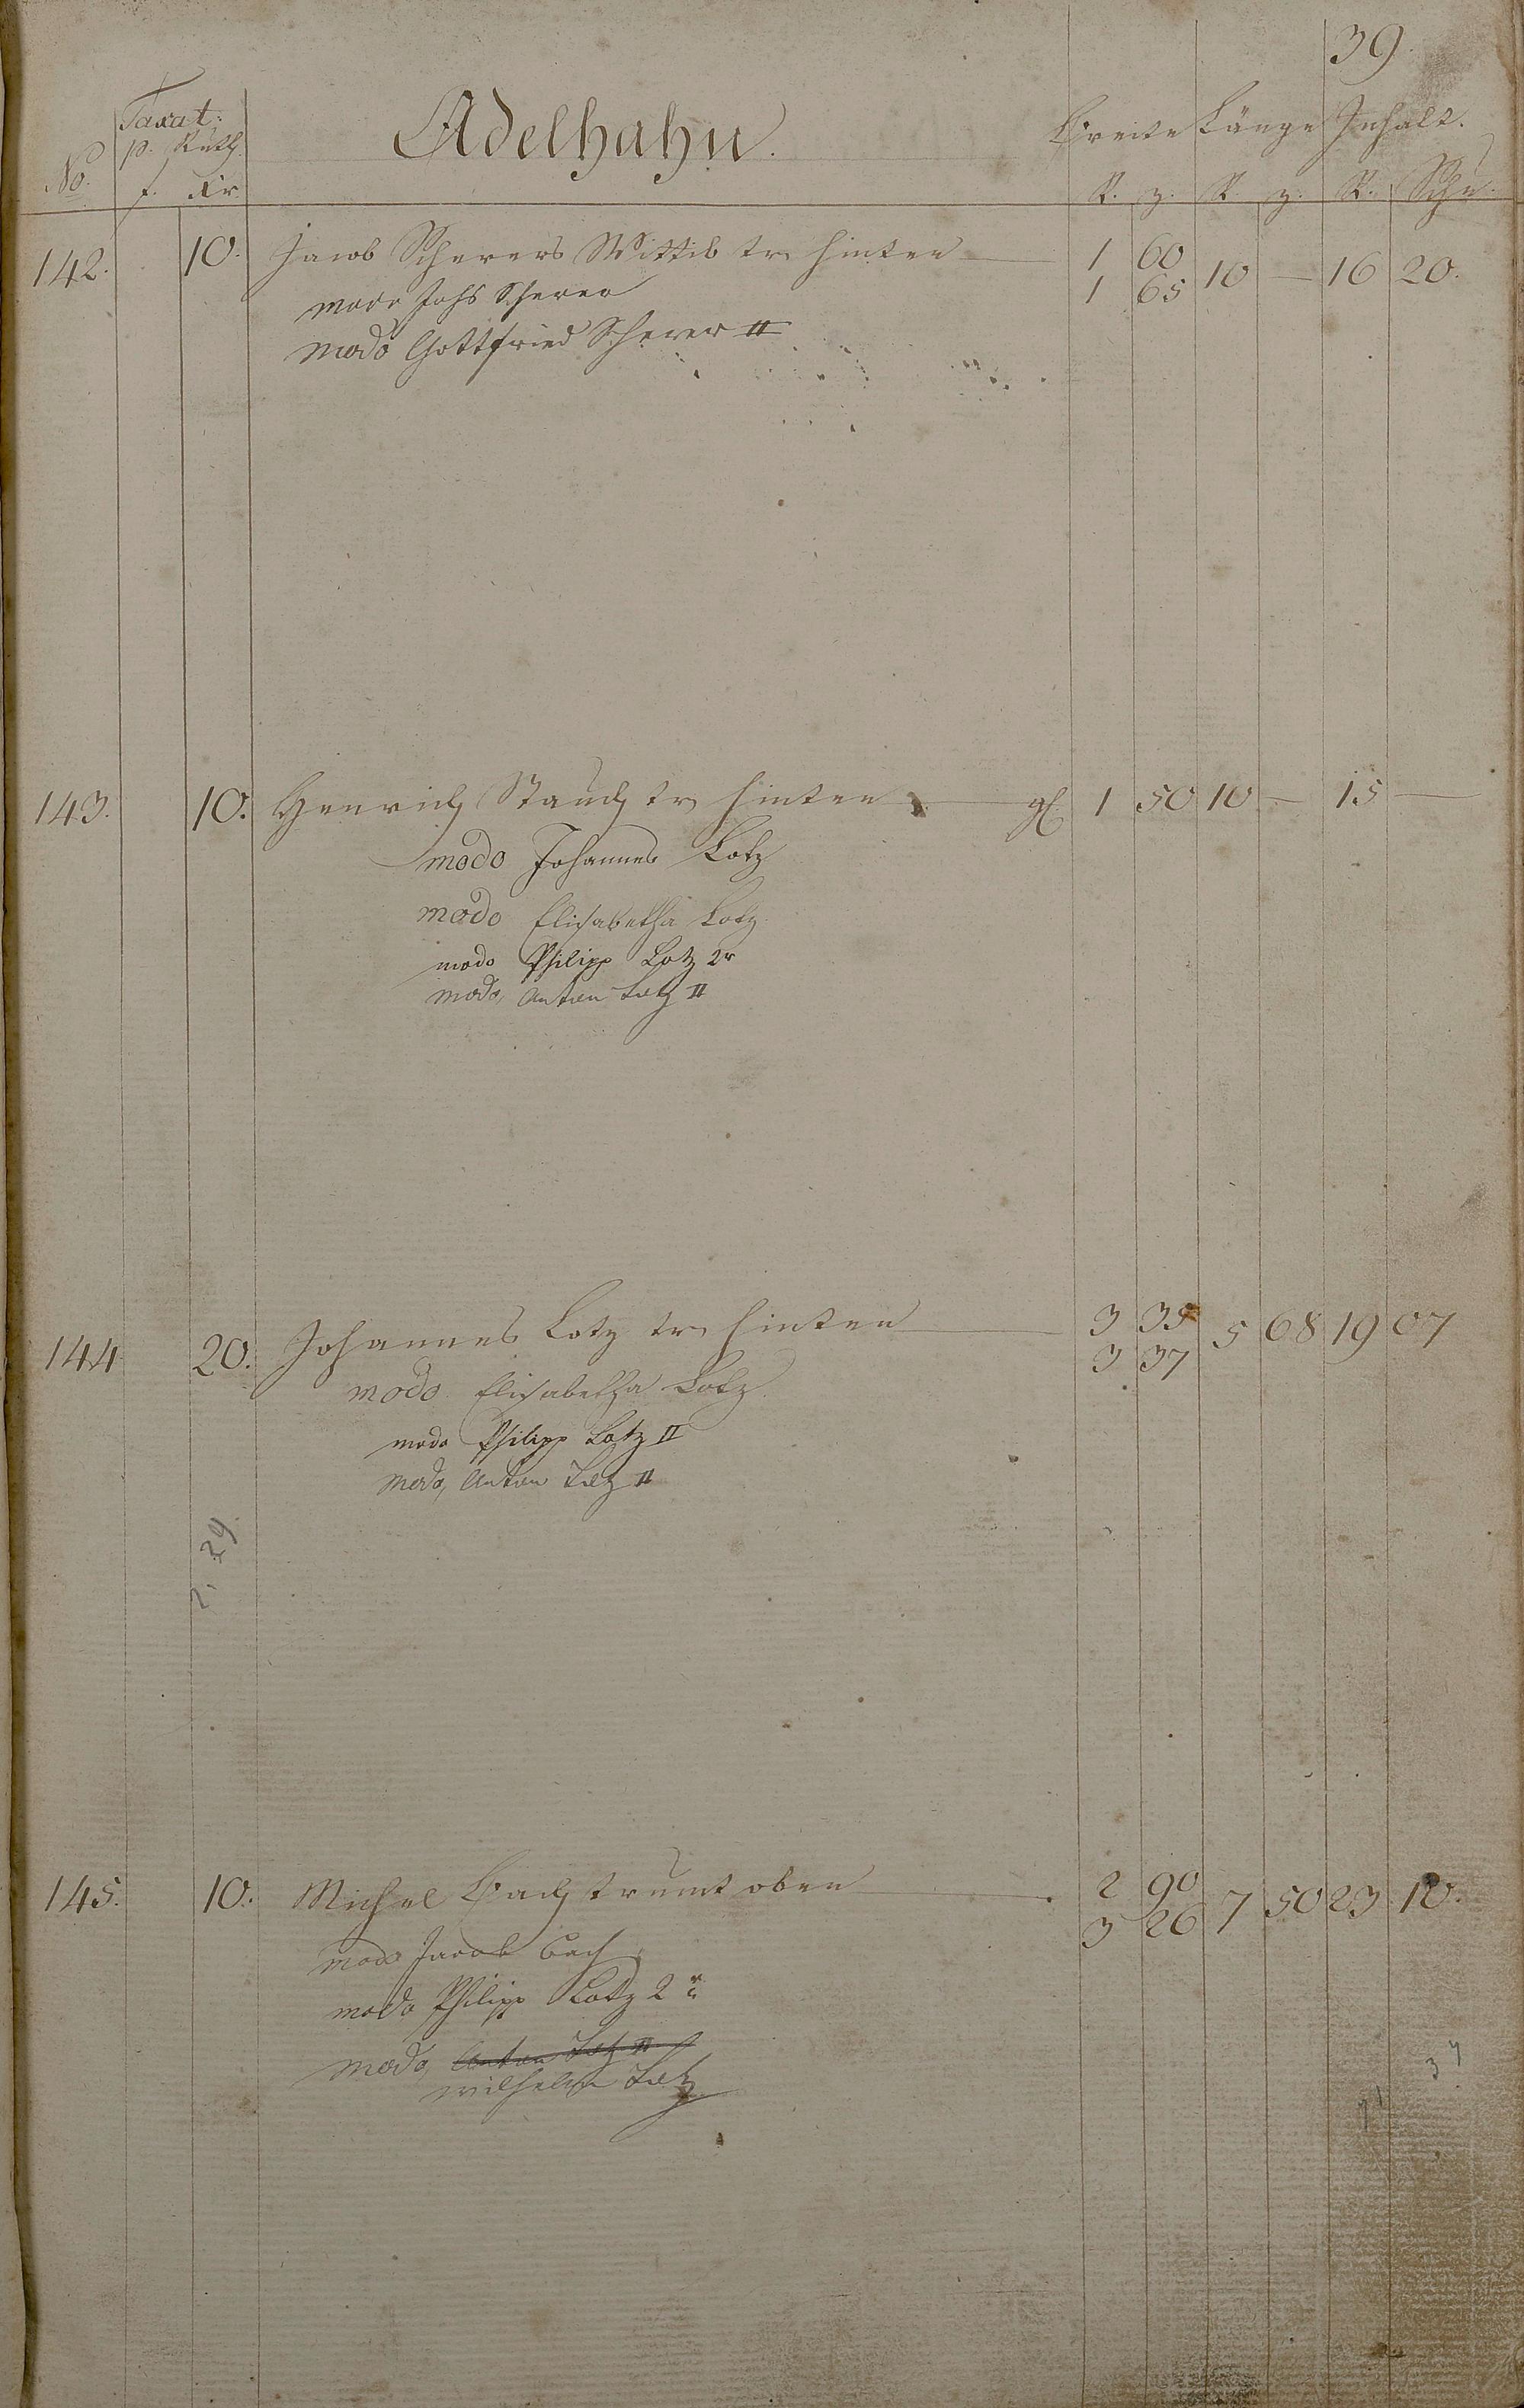 39.
Taxat:
p. Ruth.
Adelhahn.
Breite Länge Inhalt.
No. f. Kr. R. z. R. z. R. Schu.
142. 10. Jacob Scherers Wittib tr. hinten — 1 60 10 — 16 20.
1 65
modo Johs Scherer
modo Gottfried Scherer II
143. 10. Henrich Stauch tr. hinten — gl. 1 50 10 — 15 —
modo Johannes Lotz
modo Elisabetha Lotz
modo Philipp Lotz 2r
modo, Anton Lotz II
144 20. Johannes Lotz tr. hinten — 3 35 5 68 19 07
3 37
modo Elisabetha Lotz
modo Philipp Lotz II
modo, Anton Lotz II
29
145. 10. Michel Bach trumt oben — 2 90 7 50 23 10.
3 26
modo Jacob Bach
modo Philipp Lotz 2r
modo, Anton Lotz II
Wilhelm Lotz